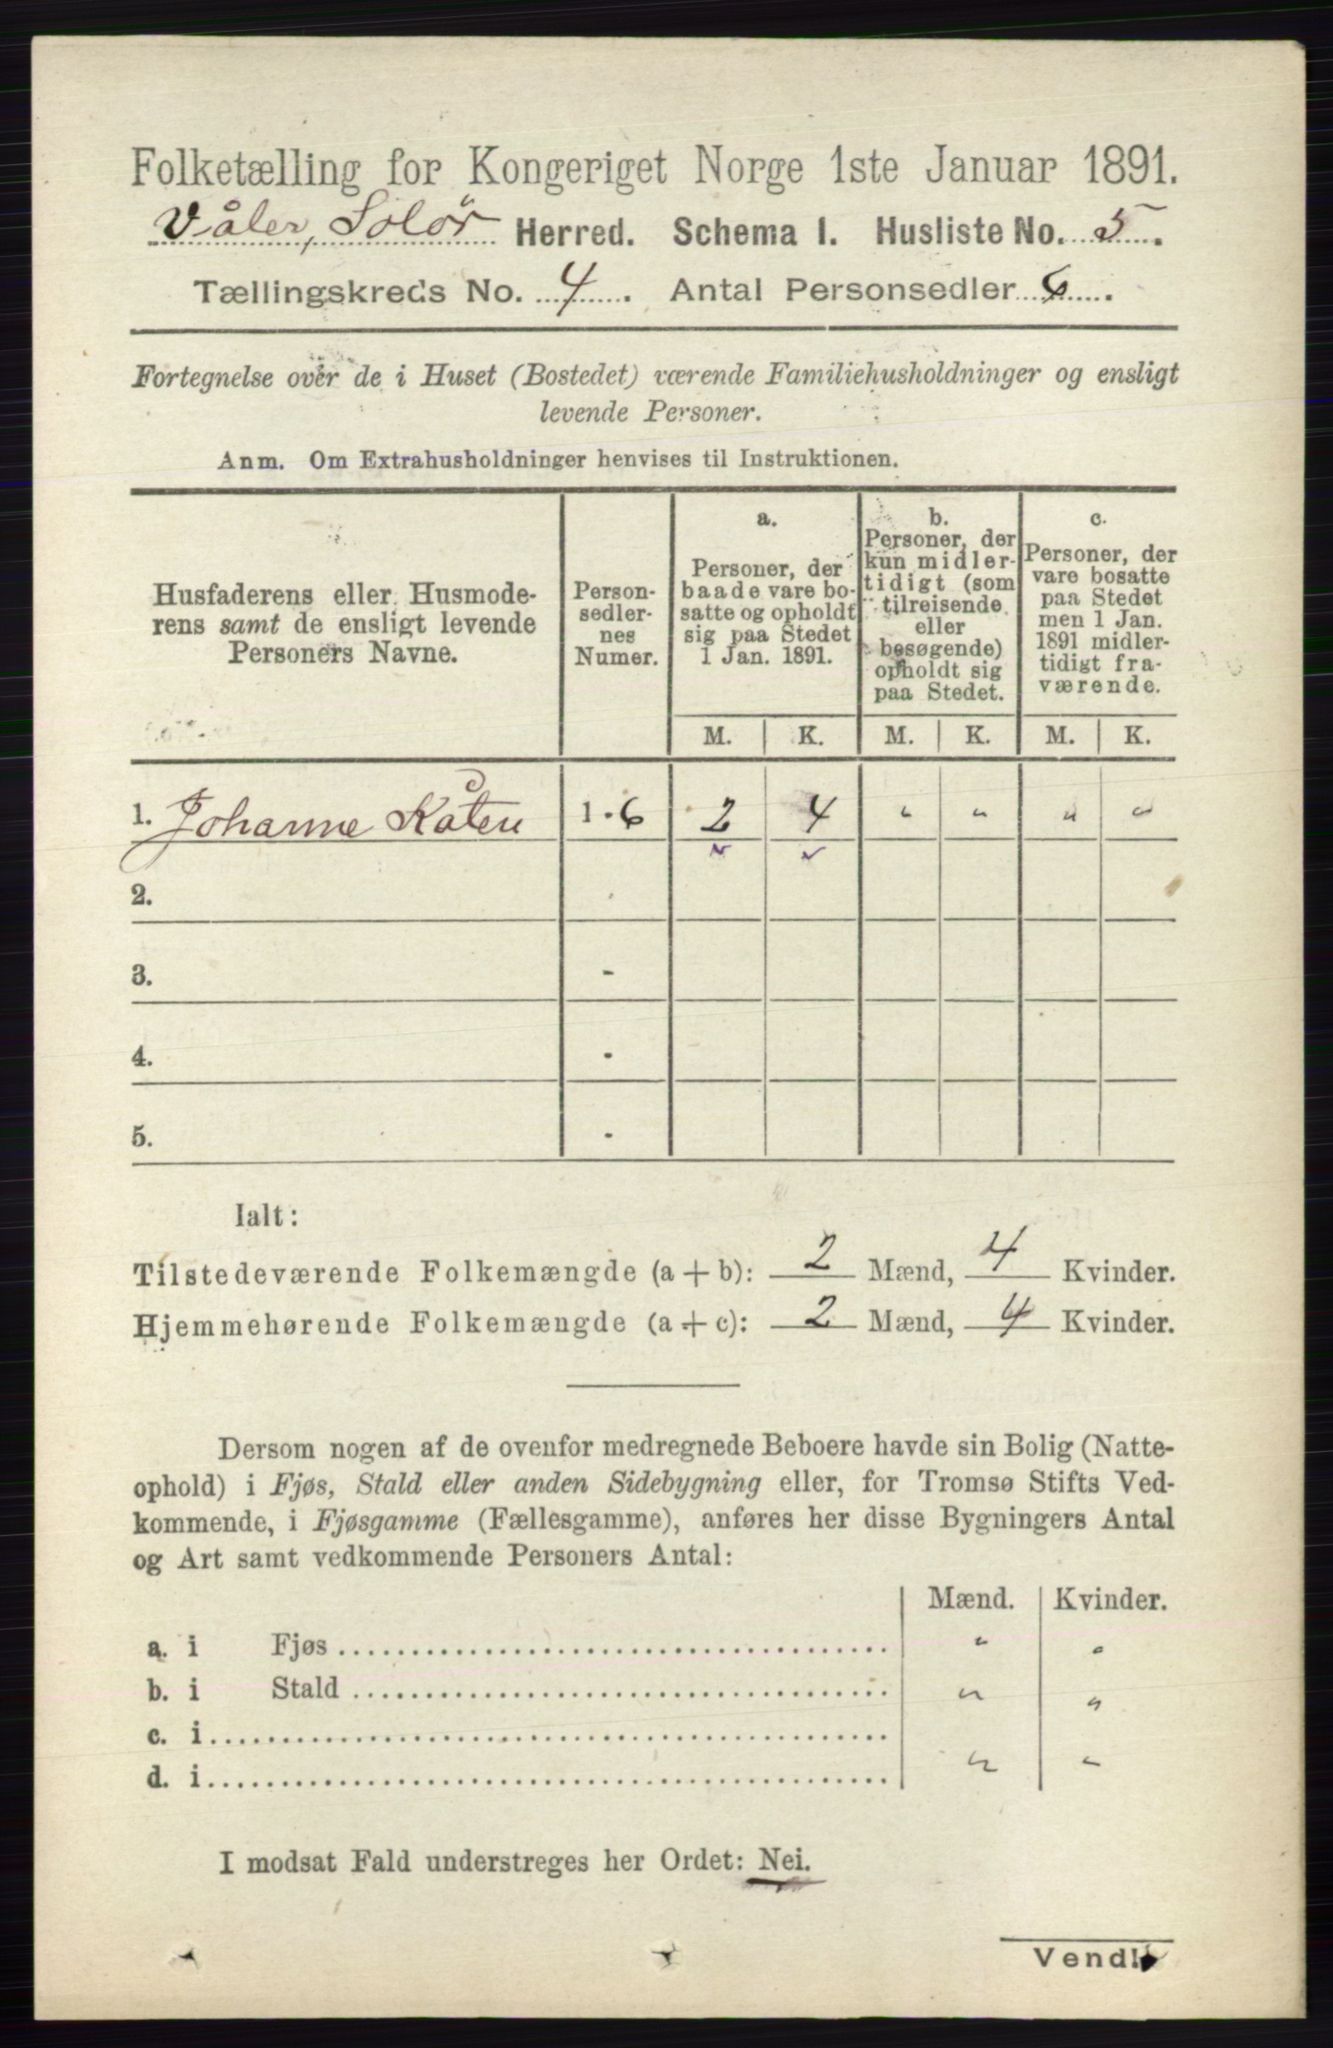 Folketælling for Kongeriget Norge 1ste Januar 1891.
Våler, Solör Herred. Schema I. Husliste No. 5.
Tællingskreds No. 4. Antal Personsedler 6.
Fortegnelse over de i Huset (Bostedet) værende Familiehusholdninger og ensligt
levende Personer.
Anm. Om Extrahusholdninger henvises til Instruktionen.
Husfaderens eller Husmode-
rens samt de ensligt levende
Personers Navne.
Person-
sedler-
nes
Numer.
a.
Personer, der
baade vare bo-
satte og opholdt
sig paa Stedet
1 Jan. 1891.
b.
Personer, der
kun midler-
tidigt (som
tilreisende
eller
besøgende)
opholdt sig
paa Stedet.
c.
Personer, der
vare bosatte
paa Stedet
men 1 Jan.
1891 midler-
tidigt fra-
værende.
M. K. M. K. M. K.
1. Johanne Kåten 1 - 6 2 4 " " " "
2.
3. -
4. -
5. -
Ialt:
Tilstedeværende Folkemængde (a + b): 2 Mænd, 4 Kvinder.
Hjemmehørende Folkemængde (a + c): 2 Mænd, 4 Kvinder.
Dersom nogen af de ovenfor medregnede Beboere havde sin Bolig (Natte-
ophold) i Fjøs, Stald eller anden Sidebygning eller, for Tromsø Stifts Ved-
kommende, i Fjøsgamme (Fællesgamme), anføres her disse Bygningers Antal
og Art samt vedkommende Personers Antal:
Mænd. Kvinder.
a. i Fjøs " "
b. i Stald " "
c. i
d. i " "
I modsat Fald understreges her Ordet: Nei.
Vend!